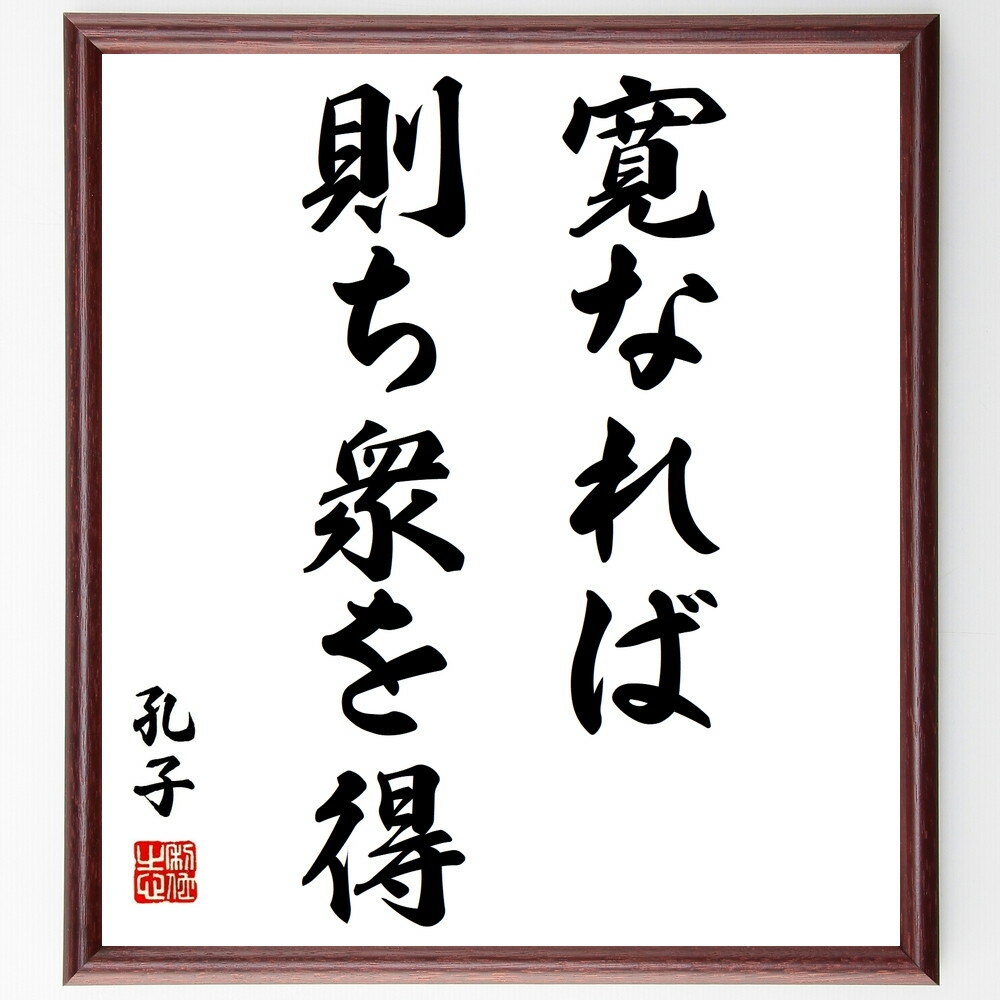 寛なれば
則ち衆を得
孔子